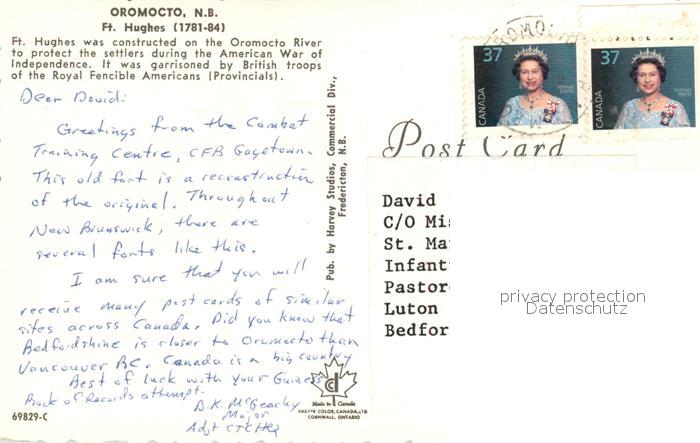 OROMOCTO, N.B.
Ft. Hughes (1781-84)
Ft. Hughes was constructed on the Oromocto River
to protect the settlers during the American War of
Independence. It was garrisoned by British troops
of the Royal Fencible Americans (Provincials).
Dear David:
Greetings from the Combat
Training Centre, CFB Gagetown.
This old fort is a reconstruction
of the original. Throughout
New Brunswick, there are
several forts like this.
I am sure that you will
receive many post cards of similar
sites across Canada. Did you know that
Bedfordshire is closer to Oromocto than
Vancouver BC. Canada is a big country
Best of luck with your Guiness
Book of Records attempt.
D.K. McGeachy
Major
Adjt CTCHQ
69829-C
Pub. by Harvey Studios, Commercial Div.,
Fredericton, N.B.
Made in Canada
DEXTER COLOR, CANADA, LTD
CORNWALL, ONTARIO
37
CANADA
POSTAGE
POSTES
37
CANADA
POSTAGE
POSTES
OROMOC
Post Card
David
C/O Mi
St. Ma
Infant
Pastor
Luton
Bedfor
privacy protection
Datenschutz